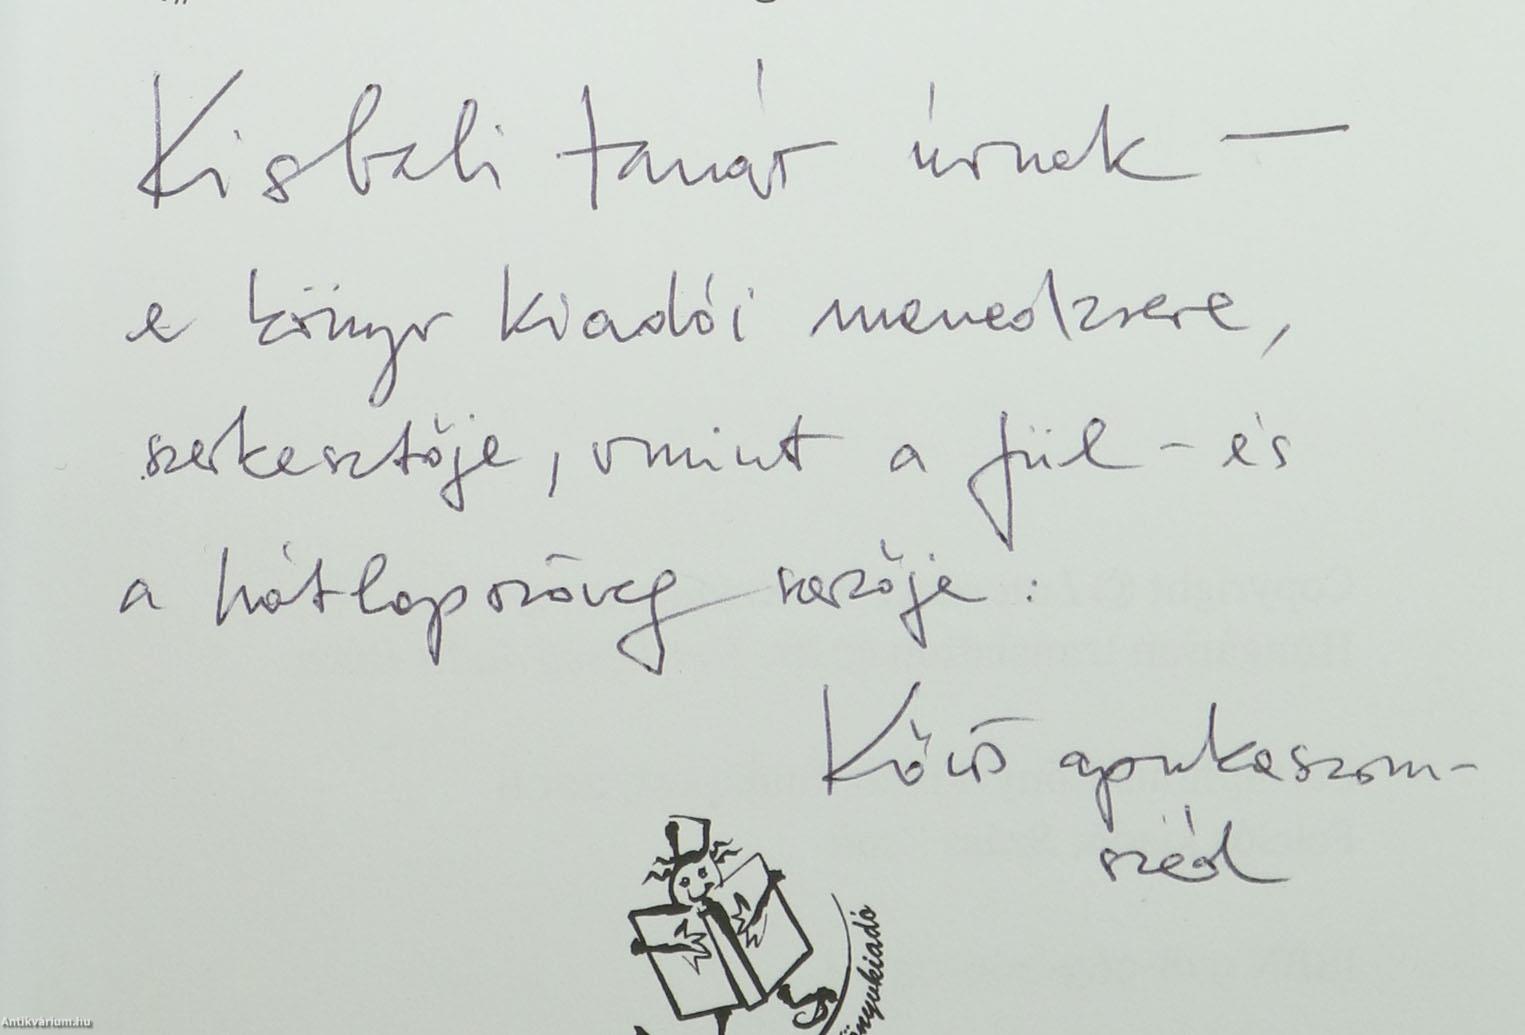 Kisbali tanár úrnak —
a könyv kiadói menedzsere,
szerkesztője, vmint a fül - és
a hátlapszöveg szerzője:
apukaszom-
széd
önyvkiadó
Antikvárium.hu